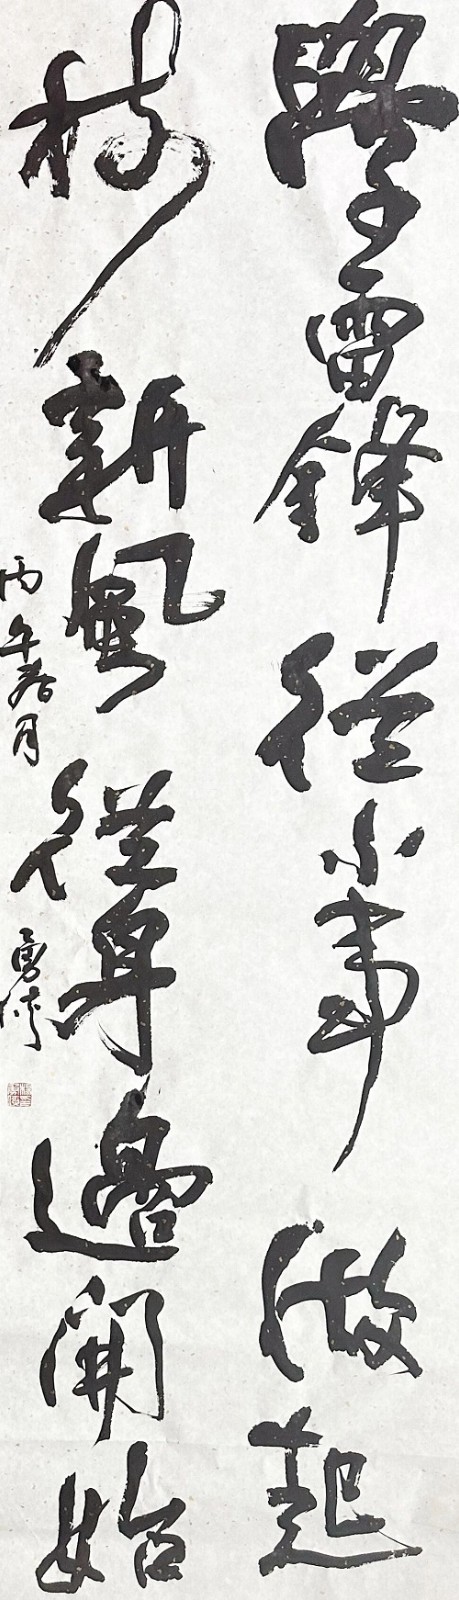 學雷鋒從小事做起
樹新風從身邊開始
丙午春月